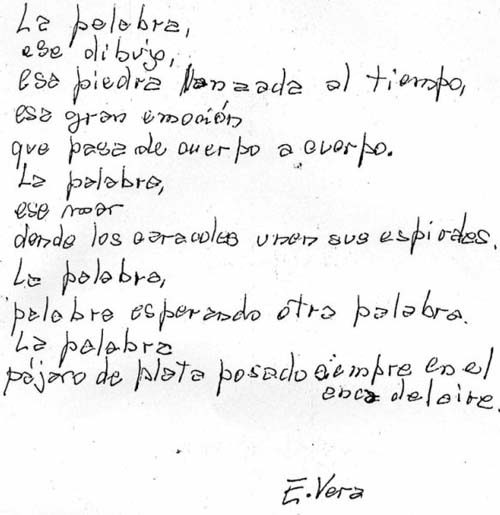 La palabra,
ese dibujo,
esa piedra lanzada al tiempo,
esa gran emoción
que pasa de cuerpo a cuerpo.
La palabra,
ese mar
donde los caracoles unen sus espirales.
La palabra,
palabra esperando otra palabra.
La palabra
pájaro de plata posado siempre en el
anca del aire.
E. Vera